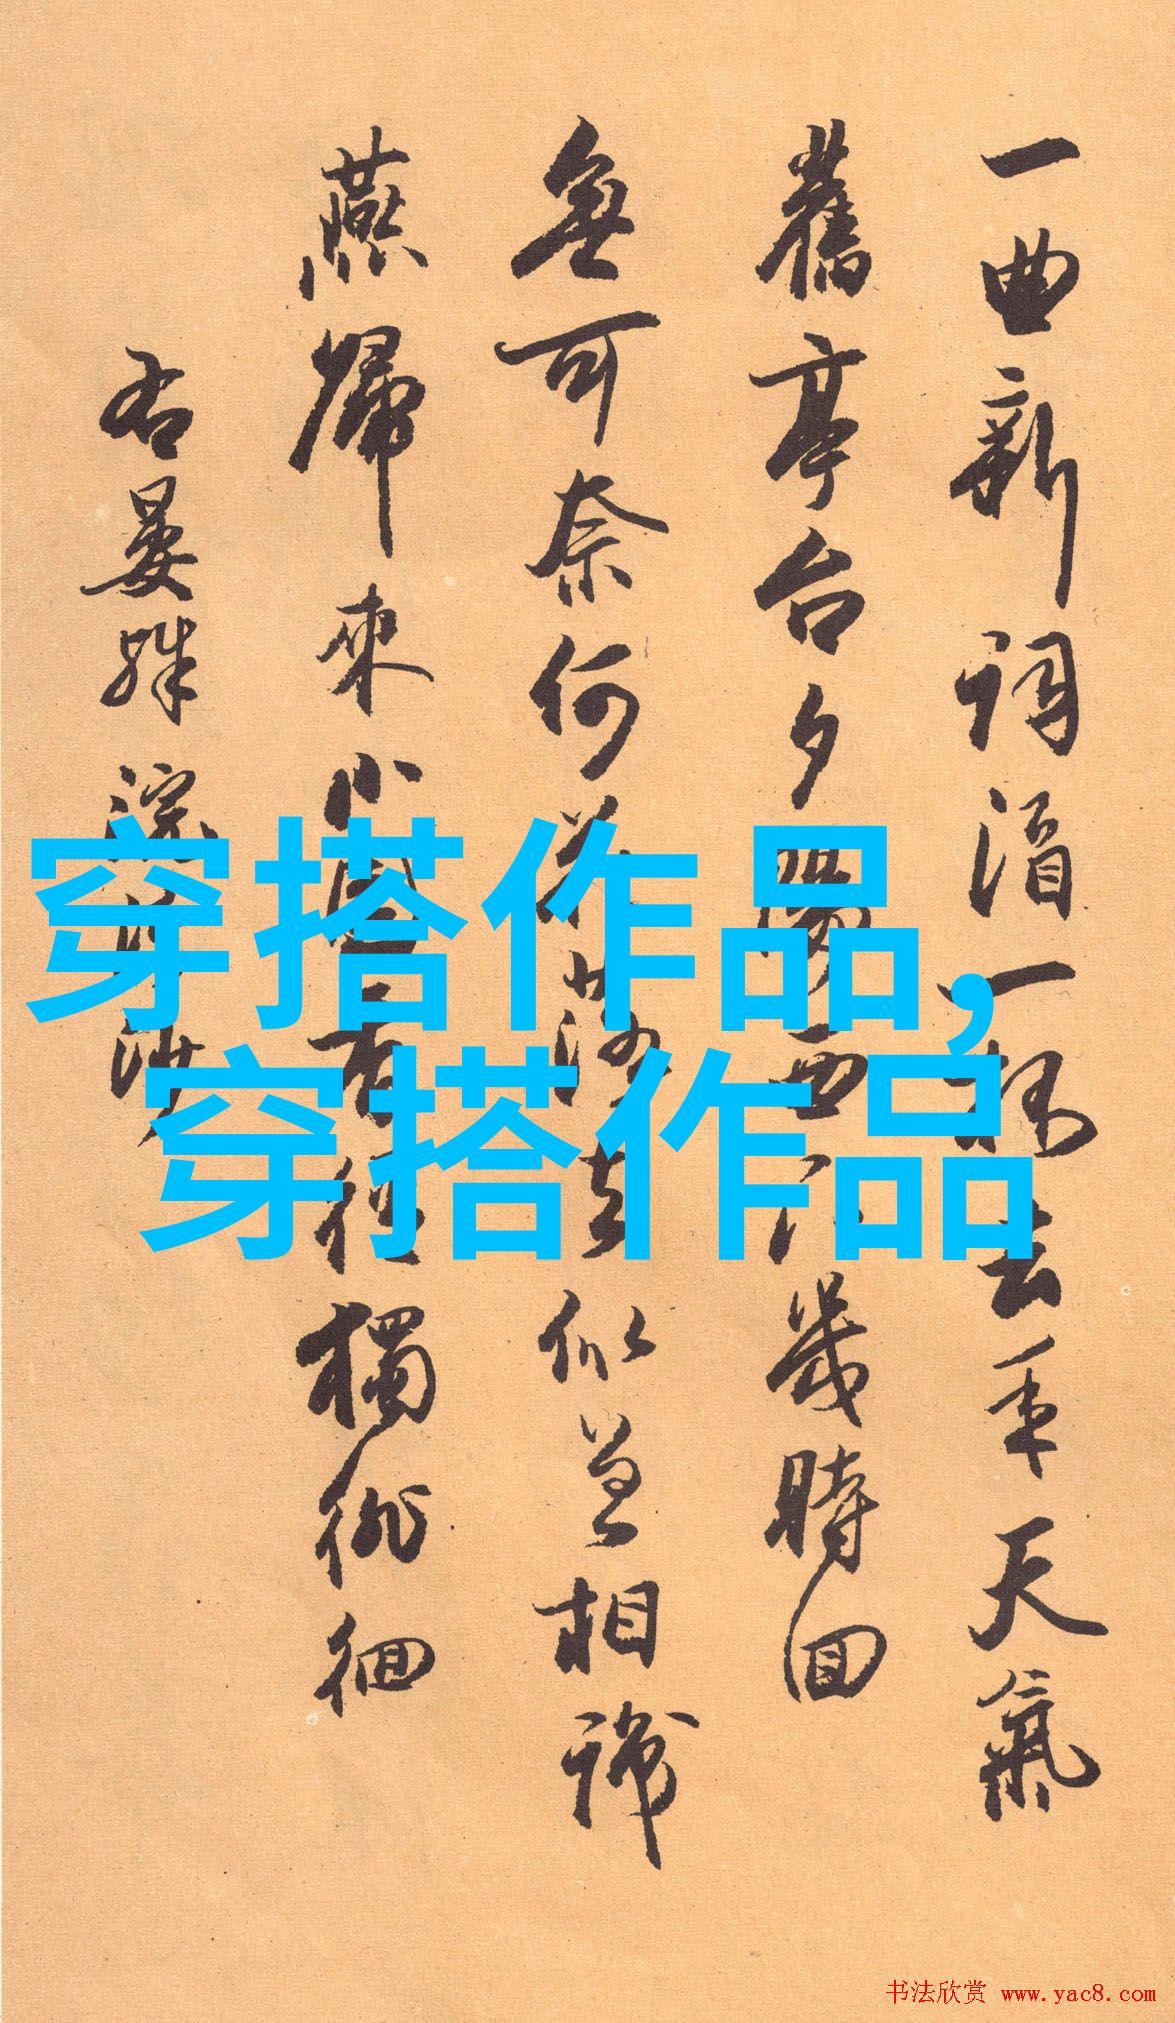 一曲新詞酒一杯去年天氣
舊亭台夕陽西下幾時回
無可奈何花落去似曾相識
燕歸來小園香徑獨徘徊
右晏殊浣溪沙
穿搭作品,
穿搭作品
书法欣赏 www.yac8.com